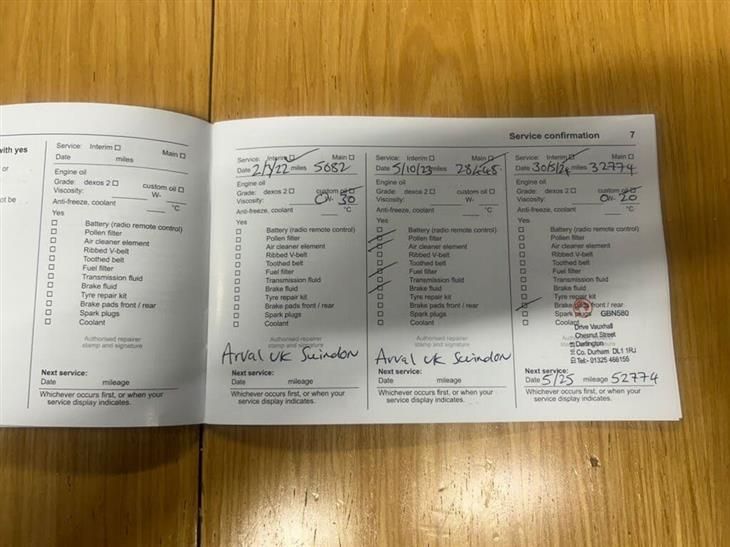 Service confirmation 7
with yes
or
not be
Service: Interim ☐ Main ☐
Date miles
Engine oil
Grade: dexos 2 ☐ custom oil ☐
Viscosity: W-
Anti-freeze, coolant °C
Yes
☐ Battery (radio remote control)
☐ Pollen filter
☐ Air cleaner element
☐ Ribbed V-belt
☐ Toothed belt
☐ Fuel filter
☐ Transmission fluid
☐ Brake fluid
☐ Tyre repair kit
☐ Brake pads front / rear
☐ Spark plugs
☐ Coolant
Authorised repairer
stamp and signature
Next service:
Date mileage
Whichever occurs first, or when your
service display indicates.
Service: Interim ☐ Main ☐
Date 22 miles 5082
Engine oil
Grade: dexos 2 ☐ custom oil ☐
Viscosity: 0W-30
Anti-freeze, coolant °C
Yes
☐ Battery (radio remote control)
☐ Pollen filter
☐ Air cleaner element
☐ Ribbed V-belt
☐ Toothed belt
☐ Fuel filter
☐ Transmission fluid
☐ Brake fluid
☐ Tyre repair kit
☐ Brake pads front / rear
☐ Spark plugs
☐ Coolant
Authorised repairer
stamp and signature
Arval UK Swindon
Next service:
Date mileage
Whichever occurs first, or when your
service display indicates.
Service: Interim ☐ Main ☐
Date 5/10/23 miles
Engine oil
Grade: dexos 2 ☐ custom oil ☐
Viscosity: W-
Anti-freeze, coolant °C
Yes
☐ Battery (radio remote control)
☐ Pollen filter
☐ Air cleaner element
☐ Ribbed V-belt
☐ Toothed belt
☐ Fuel filter
☐ Transmission fluid
☐ Brake fluid
☐ Tyre repair kit
☐ Brake pads front / rear
☐ Spark plugs
☐ Coolant
Authorised repairer
stamp and signature
Arval UK Swindon
Next service:
Date mileage
Whichever occurs first, or when your
service display indicates.
Service: Interim ☐ Main ☐
Date 30/5/24 miles 32774
Engine oil
Grade: dexos 2 ☐ custom oil ☐
Viscosity: 0W-20
Anti-freeze, coolant °C
Yes
☐ Battery (radio remote control)
☐ Pollen filter
☐ Air cleaner element
☐ Ribbed V-belt
☐ Toothed belt
☐ Fuel filter
☐ Transmission fluid
☐ Brake fluid
☐ Tyre repair kit
☐ Brake pads front / rear
☐ Spark plugs GBN580
☐ Coolant
Drive Vauxhall
Chesnut Street
Darlington
Co. Durham DL1 1RJ
Tel:- 01325 466155
Next service:
Date 5/25 mileage 52774
Whichever occurs first, or when your
service display indicates.